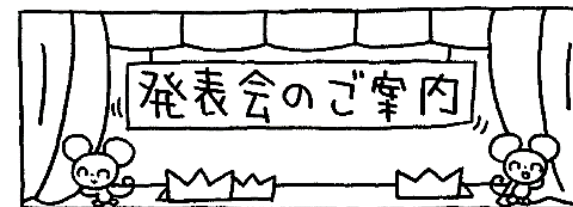 発表会のご案内